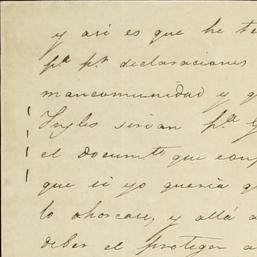 y asi es que he te
pª pr declaraciones
mancomunidad y q
Yngles sirvan pª q
el documto que con
que si yo queria q
lo ahorcase, y allá a
deber el proteger a